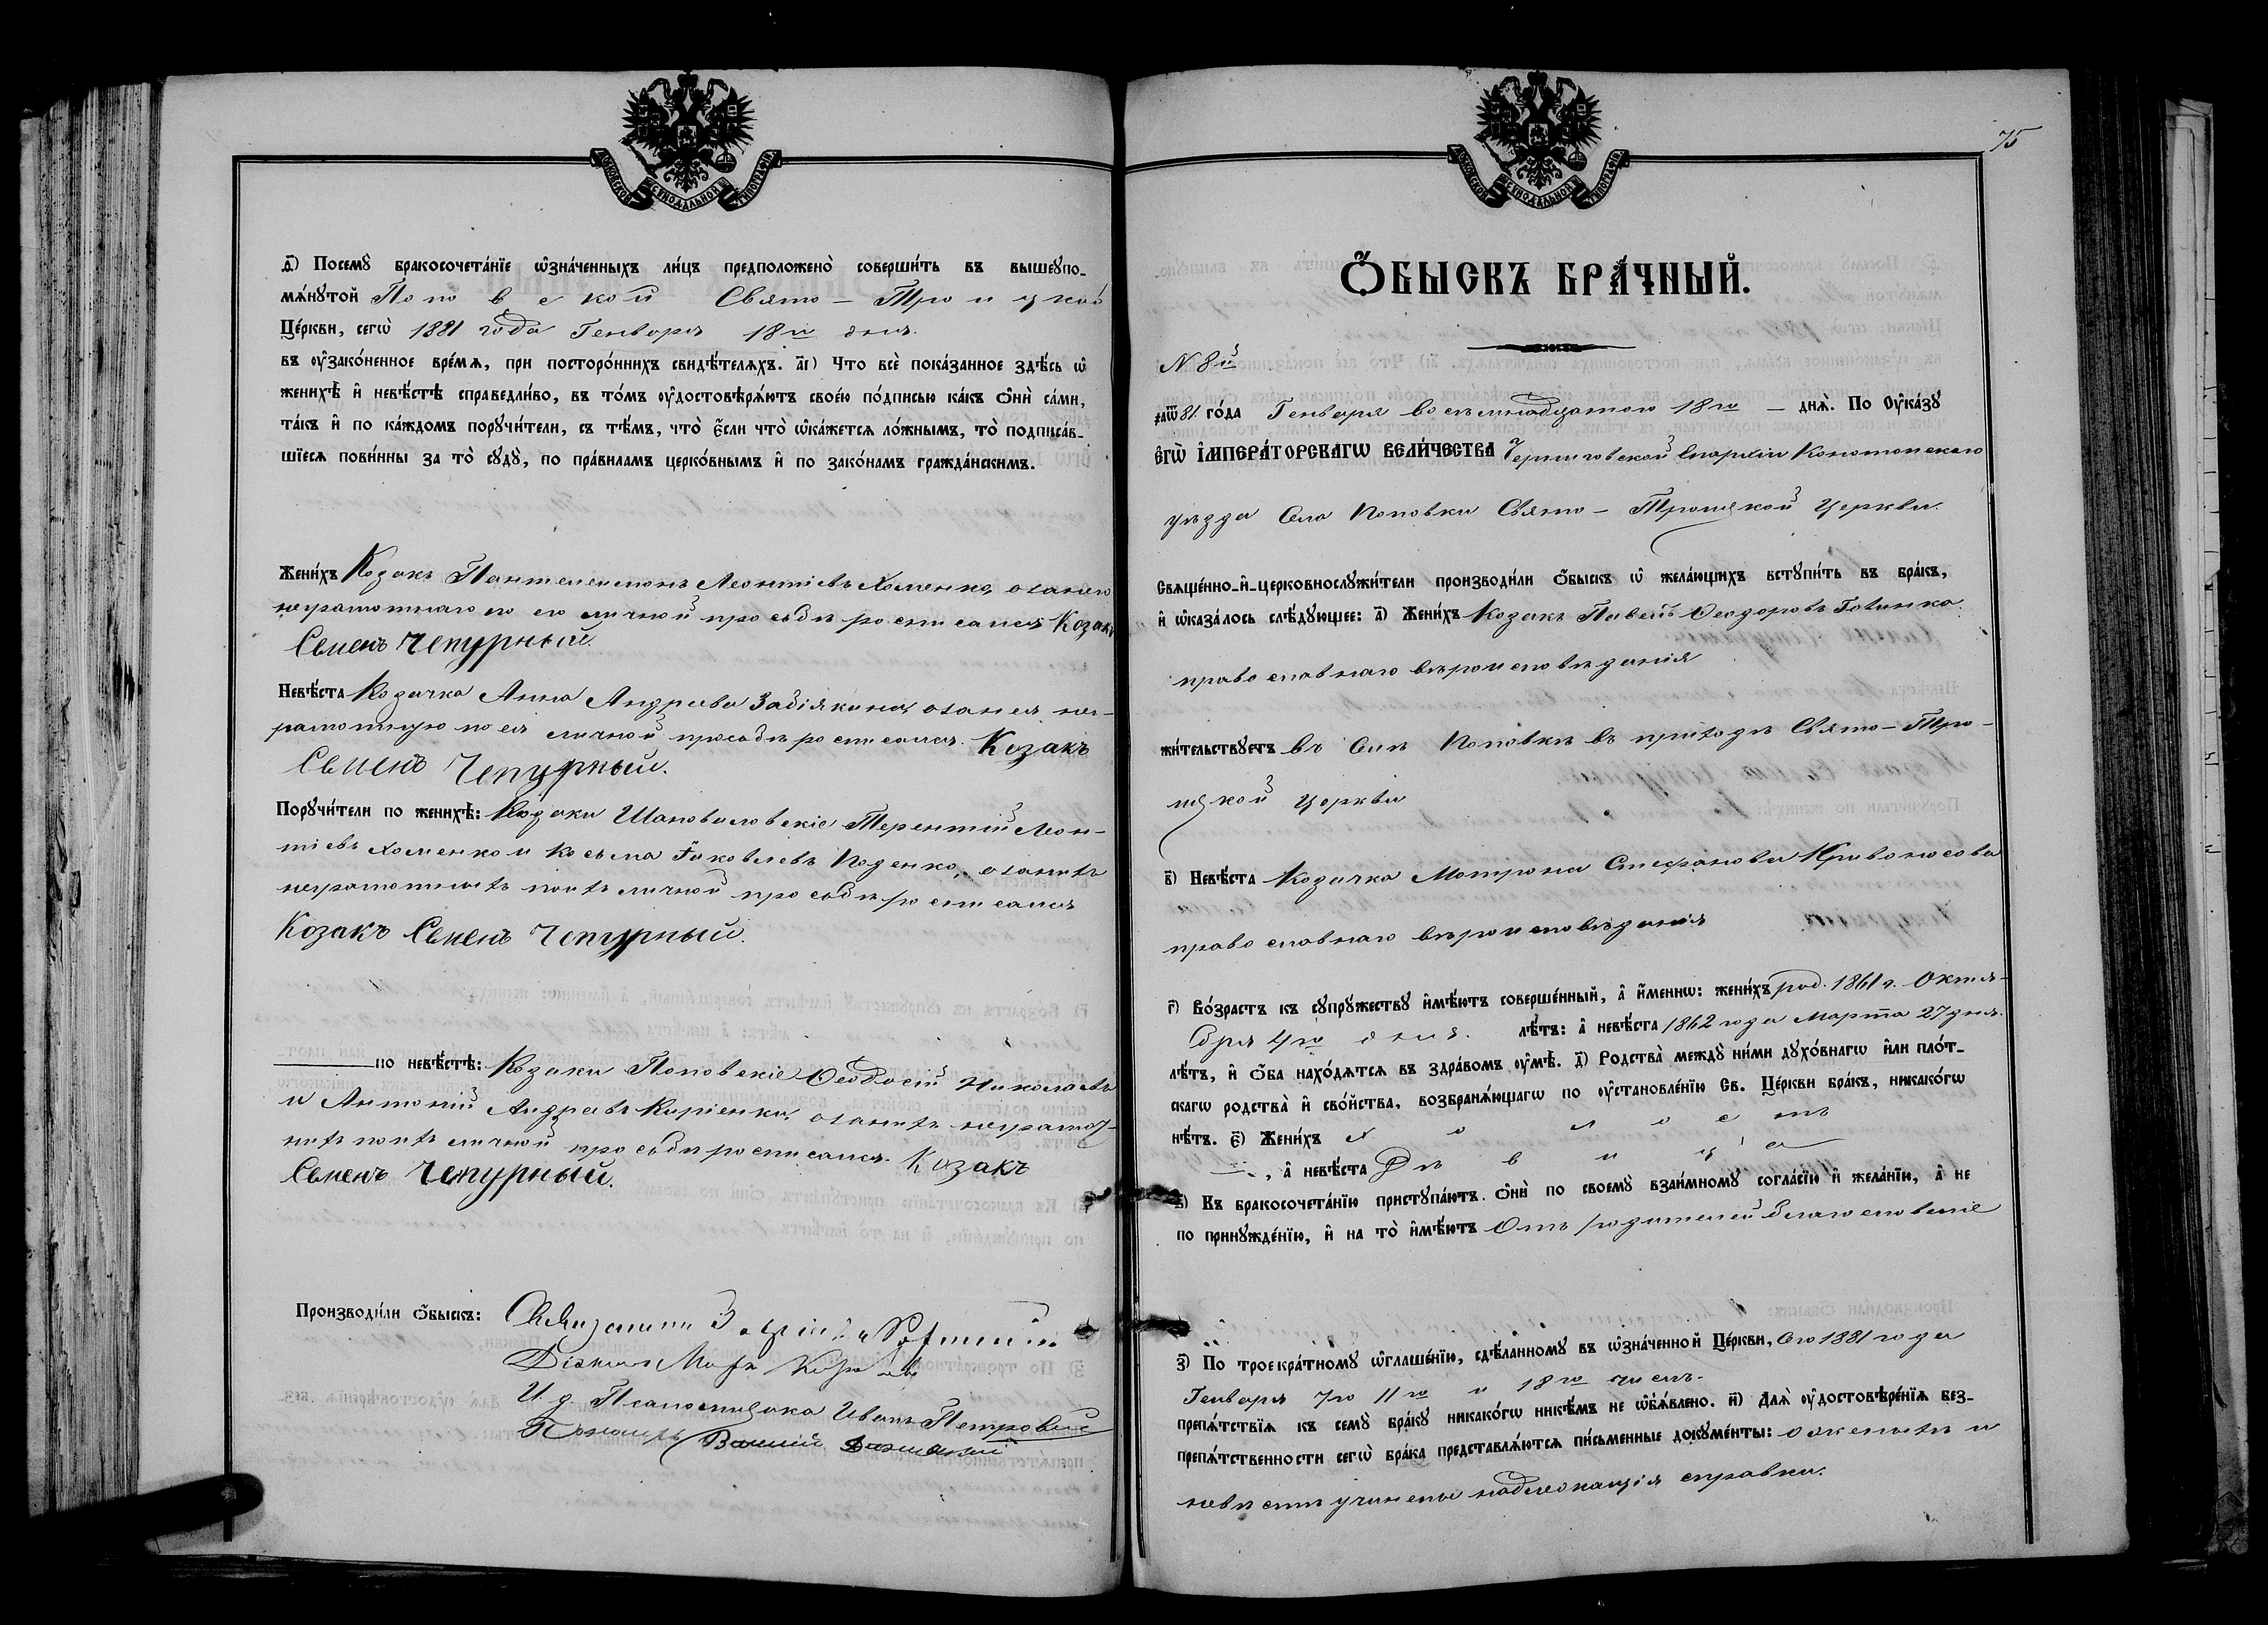 МОСКОВСКОЙ СѴНОДАЛЬНОЙ ТИПОГРАФІИ
і҃) Посемꙋ̀ бракосочета́нїе ѡ҆зна́ченныхъ ли́цъ предположено̀ соверши́ть въ вышеꙋпо-
мѧ́нꙋтой Поповской Свято-Троицкой
Це́ркви, сегѡ̀ 1881 года Генваря 18го дня.
въ ᲂу҆зако́ненное вре́мѧ, при посторо́ннихъ свидѣ́телѧхъ. а҃і) Что всѐ пока́занное здѣ́сь ѡ҆
женихѣ̀ и҆ невѣ́стѣ справедли́во, въ то́мъ ᲂу҆достовѣрѧ́ютъ свое́ю по́дписью ка́къ ѻ҆нѝ са́ми,
та́къ и҆ по ка́ждомъ порꙋчи́тели, съ тѣ́мъ, что̀ є҆́сли что̀ ѡ҆ка́жетсѧ ло́жнымъ, то̀ подписа́в-
шїесѧ пови́нны за то̀ сꙋдꙋ̀, по пра́виламъ церко́внымъ и҆ по зако́намъ гражда́нскимъ.
Жени́хъ Козакъ Пантелеимонъ Леонтіевъ Хоменко, а занего
неграмотнаго по его личной просьбѣ росписался Козакъ
Семенъ Чепурный.
Невѣ́ста Козачка Анна Андреева Забіякина, а занея не-
грамотную по ея личной просьбѣ росписался. Козакъ
Семенъ Чепурный.
Порꙋчи́тели по женихѣ̀: Козаки Шаповаловскіе Терентій Леон-
тіевъ Хоменко и Косьма Іаковлевъ Коденко, а занихъ
неграмотныхъ поихъ личной просьбѣ росписался
Козакъ Семенъ Чепурный.
по невѣ́стѣ: Козаки Поповскіе Ѳеодосій Николаевъ
и Антоній Андреевъ Киріенки, а занихъ неграмот-
ныхъ поихъ личной просьбѣ росписался. Козакъ
Семенъ Чепурный.
Производи́ли ѻ҆́быскъ: Священникъ
Діаконъ
И. д. Псаломщика Иванъ Петровскій
Пономарь
75
МОСКОВСКОЙ СѴНОДАЛЬНОЙ ТИПОГРАФІИ
Ѻ҆́БЫСКЪ БРА́ЧНЫЙ.
N 8й
҂аѿ81 го́да Генваря восемнадцатаго 18го – днѧ̀. По Оу҆ка́зꙋ
Є҆гѡ̀ І҆МПЕРА́ТОРСКАГѠ ВЕЛИ́ЧЕСТВА Черниговской Епархіи Конотопскаго
уѣзда Села Поповки Свято-Троицкой Церкви.
Свѧще́нно-и҆-церковнослꙋжи́тели производи́ли ѻ҆́быскъ ѡ҆ жела́ющихъ встꙋпи́ть въ бра́къ,
и҆ ѡ҆каза́лось слѣ́дꙋющее: а҃) Жени́хъ Козакъ Павелъ Ѳеодоровъ
православнаго вѣроисповѣданія
жи́тельствꙋетъ въ Селѣ Поповкѣ въ приходѣ Свято-Тро-
ицкой Церкви
в҃) Невѣ́ста Козачка Матрона Стефанова Кривоносова
православнаго вѣроисповѣданія
г҃) Во́зрастъ къ сꙋпрꙋ́жествꙋ и҆мѣ́ютъ соверше́нный, а҆ и҆́меннѡ: жени́хъ род. 1861 г. Октя-
бря 4го дня. лѣ́тъ: а҆ невѣ́ста 1862 года Марта 27 дня.
лѣ́тъ, и҆ ѻ҆́ба нахо́дѧтсѧ въ здра́вомъ ᲂу҆мѣ̀. д҃) Родства̀ междꙋ̀ ни́ми дꙋхо́внагѡ и҆ли пло́т-
скагѡ родства̀ и҆ сво́йства, возбранѧ́ющагѡ по ᲂу҆становле́нїю Св. Це́ркви бра́къ, никако́гѡ
нѣ́тъ. є҃) Жени́хъ холостъ
, а҆ невѣ́ста Дѣвица
ѕ҃) Къ бракосочета́нїю пристꙋпа́ютъ ѻ҆нѝ по своемꙋ̀ взаи́мномꙋ согла́сїю и҆ жела́нїю, а҆ не
по принꙋжде́нїю, и҆ на то̀ и҆мѣ́ютъ Отъ родителей благословеніе
з҃) По троекра́тномꙋ ѡ҆глаше́нїю, сдѣ́ланномꙋ въ ѡ҆зна́ченной Це́ркви, Сего 1881 года
Генваря 7го 11го и 18го числъ.
препѧ́тствїѧ къ семꙋ̀ бра́кꙋ никако́гѡ никѣ́мъ не ѡ҆б̾ѧ́влено. и҃) Длѧ̀ ᲂу҆достовѣре́нїѧ без-
препѧ́тственности сегѡ̀ бра́ка представлѧ́ютсѧ пи́сьменные докꙋме́нты: о женихѣ и
невѣстѣ учинены надлежащія справки.